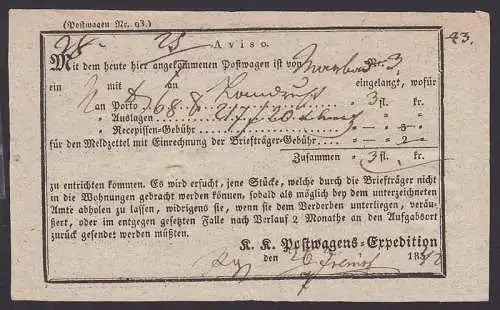 (Postwagen Nr. 93.)
28 25 Aviso. 43.
Mit dem heute hier angekommenen Postwagen ist von Nr. 3,
ein mit an eingelangt, wofür
an Porto 3 fl. kr.
" Auslagen
" Recepissen-Gebühr — 3 —
für den Meldzettel mit Einrechnung der Briefträger-Gebühr — 2 —
Zusammen 3 fl. kr.
zu entrichten kommen. Es wird ersucht, jene Stücke, welche durch die Briefträger nicht
in die Wohnungen gebracht werden können, sobald als möglich bey dem unterzeichneten
Amte abholen zu lassen, widrigens sie, wenn sie dem Verderben unterliegen, veräu-
ßert, oder im entgegen gesetzten Falle nach Verlauf 2 Monathe an den Aufgabsort
zurück gesendet werden müßten.
K. K. Postwagens-Expedition
den 26 18